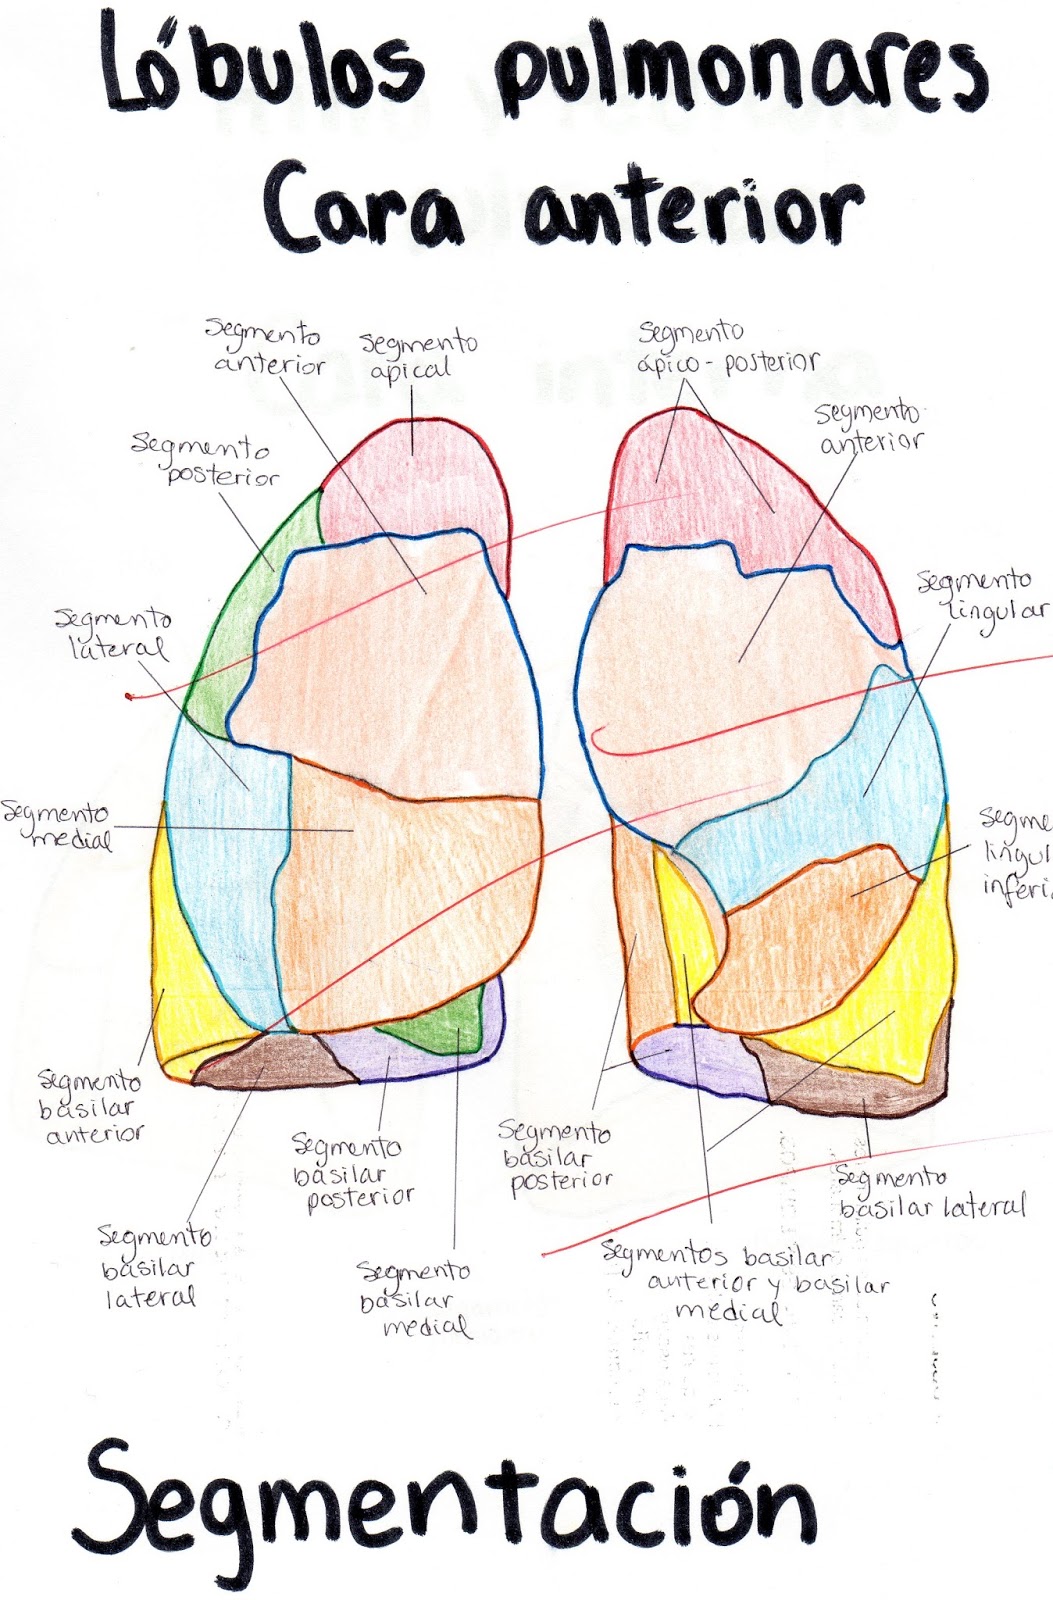 Lóbulos pulmonares
Cara anterior
Segmento
anterior
Segmento
apical
Segmento
ápico-posterior
Segmento
anterior
Segmento
posterior
Segmento
lateral
Segmento
lingular
Segmento
medial
Segme
lingul
inferi
Segmento
basilar
anterior
Segmento
basilar
posterior
Segmento
basilar
posterior
Segmento
basilar lateral
Segmento
basilar
lateral
Segmento
basilar
medial
Segmentos basilar
anterior y basilar
medial
Segmentación